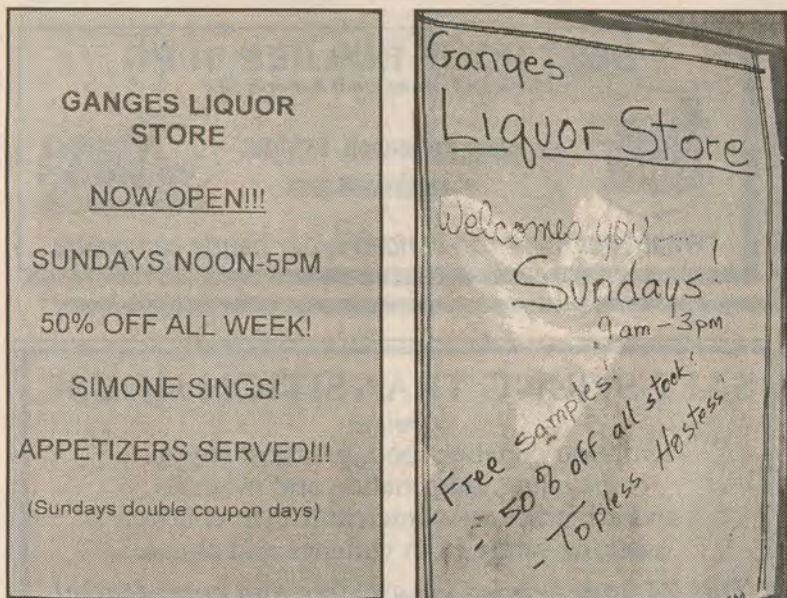 GANGES LIQUOR
STORE
NOW OPEN!!!
SUNDAYS NOON-5PM
50% OFF ALL WEEK!
SIMONE SINGS!
APPETIZERS SERVED!!!
(Sundays double coupon days)
Ganges
Liquor Store
Welcomes you
Sundays!
9am-3pm
- Free samples!
- 50% off all stock!
- Topless Hostess!